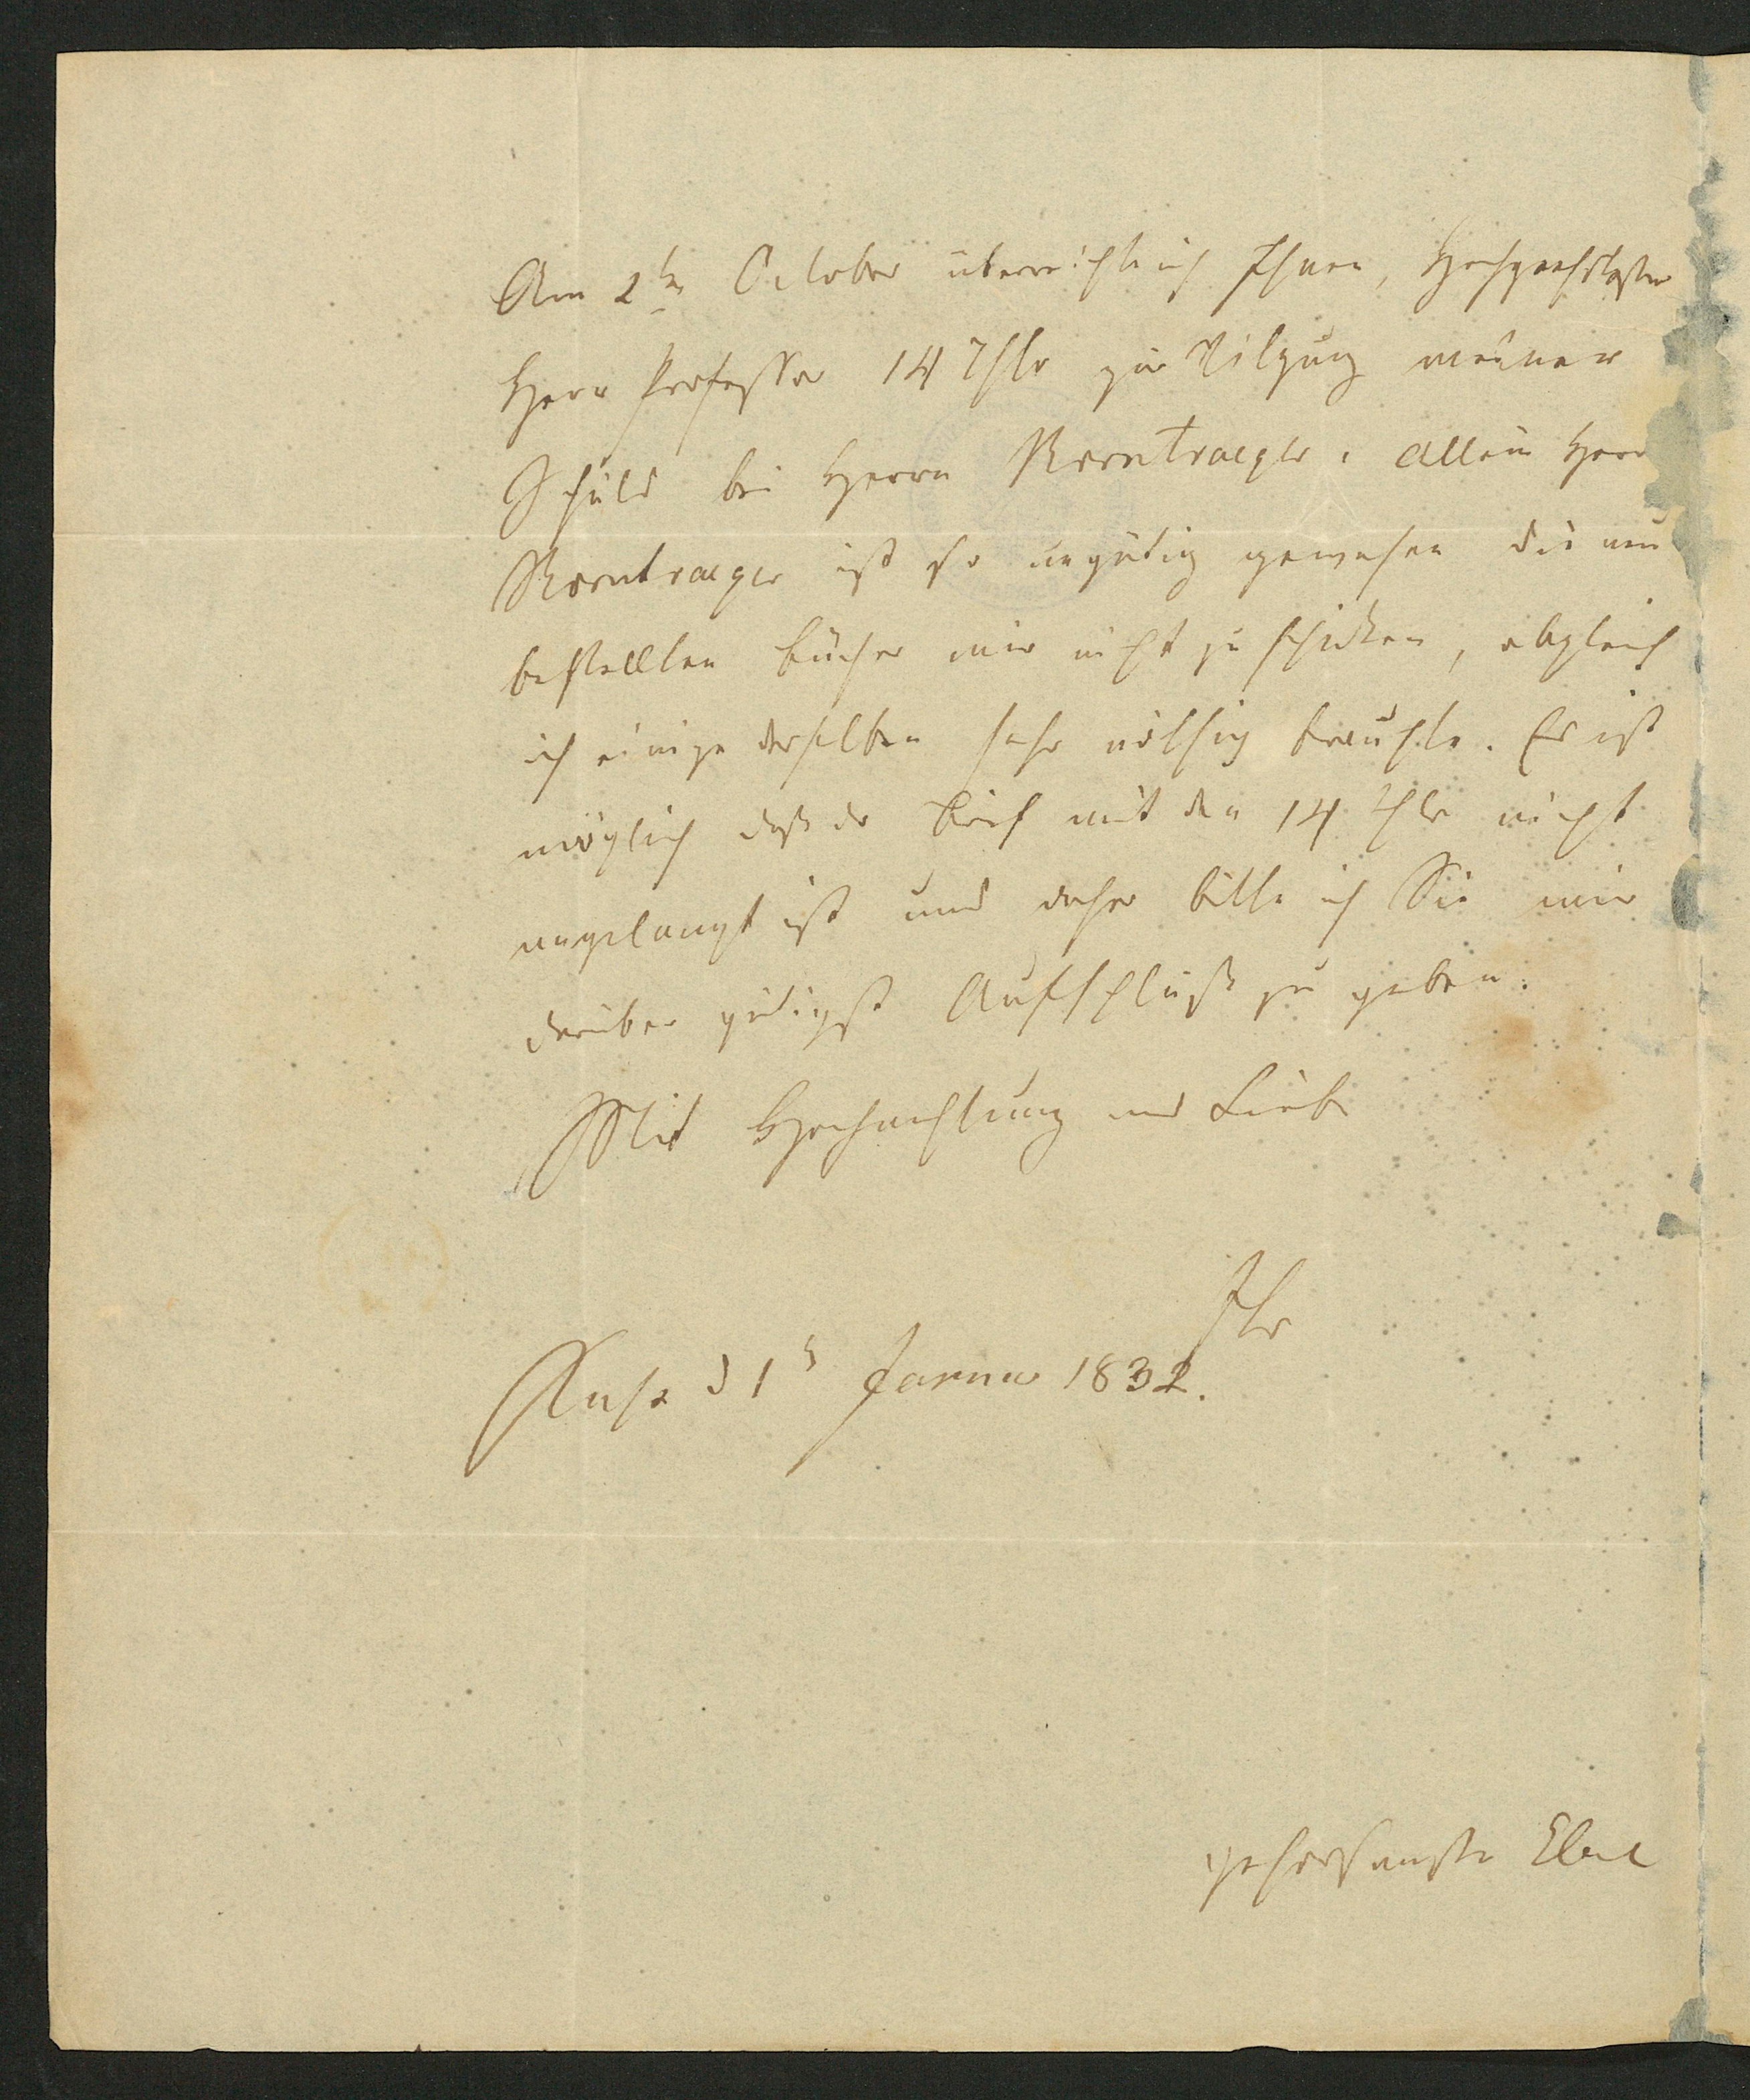 Am 2ten October überreichte ich Ihnen, Hochgeehrtester
Herr Professor 14 Thlr zur Tilgung meiner
Schuld bei Herrn Borntraeger. Allein Herr
Borntraeger ist so ungütig gewesen die neu
bestellten Bücher mir nicht zu schicken, obgleich
ich einige derselben sehr nöthig brauchte. Es ist
möglich daß der Brief mit den 14 Thlr nicht
angelangt ist und daher bitte ich Sie mir
darüber gütigst Aufschluß zu geben.
Mit Hochachtung und Liebe
Ihr
d 1t Januar 1832.
gehorsamster Ebel